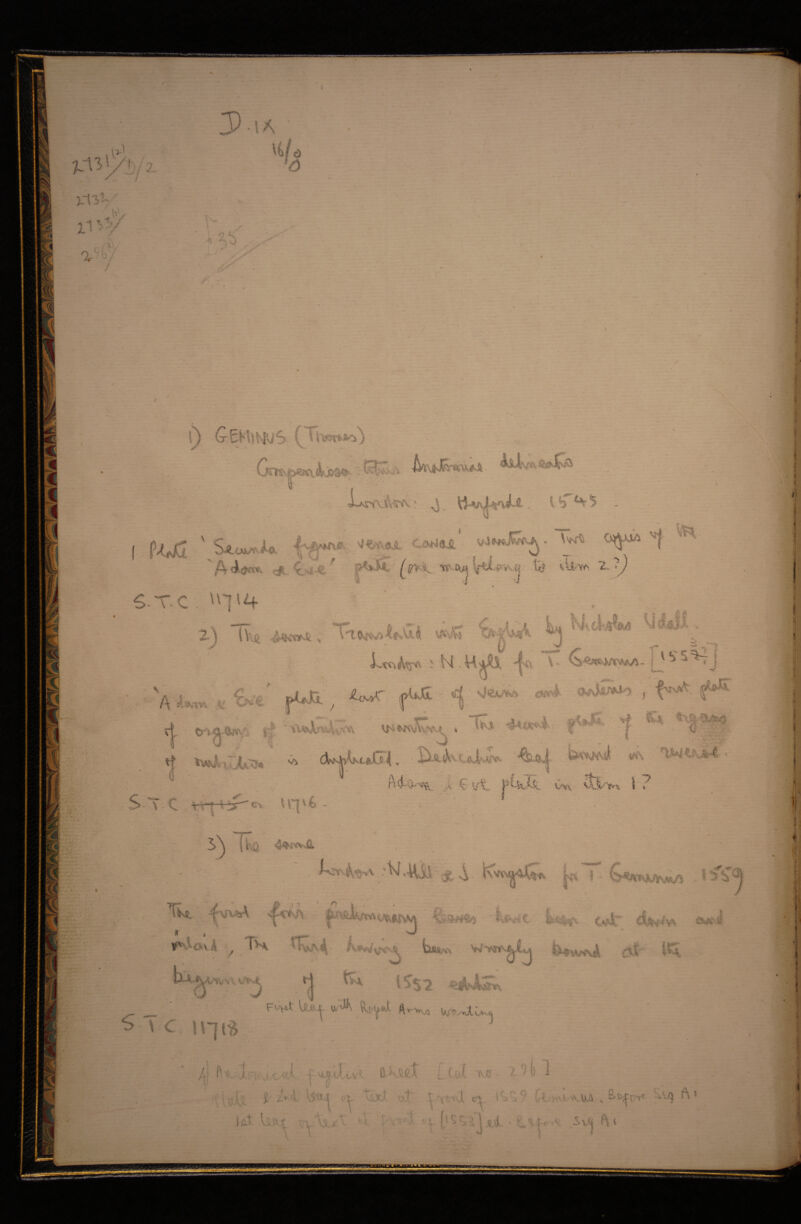 D. ix
16/8
2731(2)/D/2
2732/
2733/
296/
£35
1) GEMINUS (Thomas)
Compendiosa totius Anatomiae delineatio
London: J. Herforde. 1545.
1 Plate 'Secunda figura venae cavae' wanting. Two copies of the
'Adam & Eve' plate (one may belong to item 2.?)
S.T.C. 11714
2) The same, Translated into English by Nicholas Udall.
London: N. Hyll for T. Geminus. [1552?]
'Adam & Eve' plate, last plate of veins and arteries, first plate
of organs of nutrition wanting. The second plate of the organs
of nutrition is duplicated. Dedication leaf bound in reverse.
Adam & Eve plate in item 1?
S.T.C. 11715 or 11716.
3) The same
London: N. Hill & J. Kingston for T. Geminus 1559
The first four preliminary leaves have been cut down and
inlaid, The third having been wrongly bound at the
beginning of the 1552 edition
First leaf with Royal Arms wanting
S.T.C. 11718
4) Anatomical fugitive sheet [Cat no. 296]
Plate & 2nd leaf of text at front of 1559 Geminus. Before Sig A1
1st leaf of text at front of [1552] ed. Before Sig A1